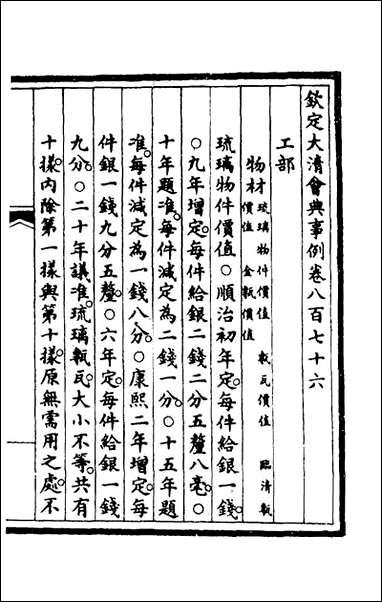 欽定大清會典事例卷八百七十六
工部
物材琉璃物件價值 甎瓦價值 臨清甎
價值 金甎價值
琉璃物件價值○順治初年定。每件給銀一錢。
○九年增定。每件給銀二錢二分五釐八毫。○
十年題准。每件減定為二錢一分。○十五年題
准。每件減定為一錢八分。○康熙二年增定。每
件銀一錢九分五釐。○六年定。每件給銀一錢
九分。○二十年議准。琉璃甎瓦大小不等。共有
十樣。內除第一樣與第十樣。原無需用之處。不